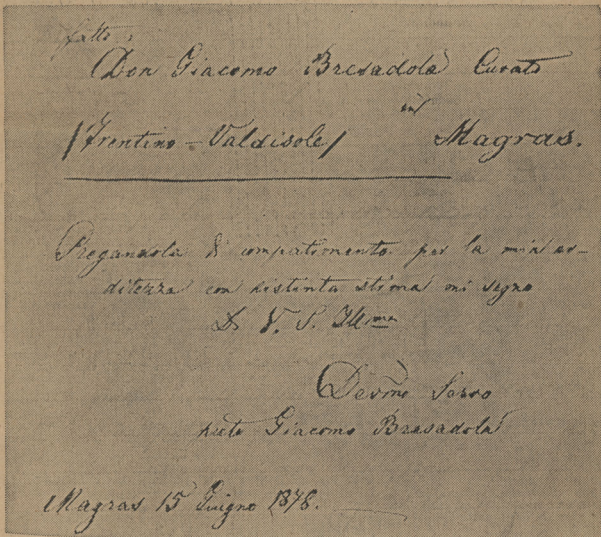 fatto,
Don Giacomo Bresadola Curato
in
/Trentino - Valdisole/ Magras.
Pregandola di compatimento per la mia ar-
ditezza con distinta stima mi segno
D. V. S. Illma
Devmo Servo
prete Giacomo Bresadola
Magras 15 Giugno 1878.